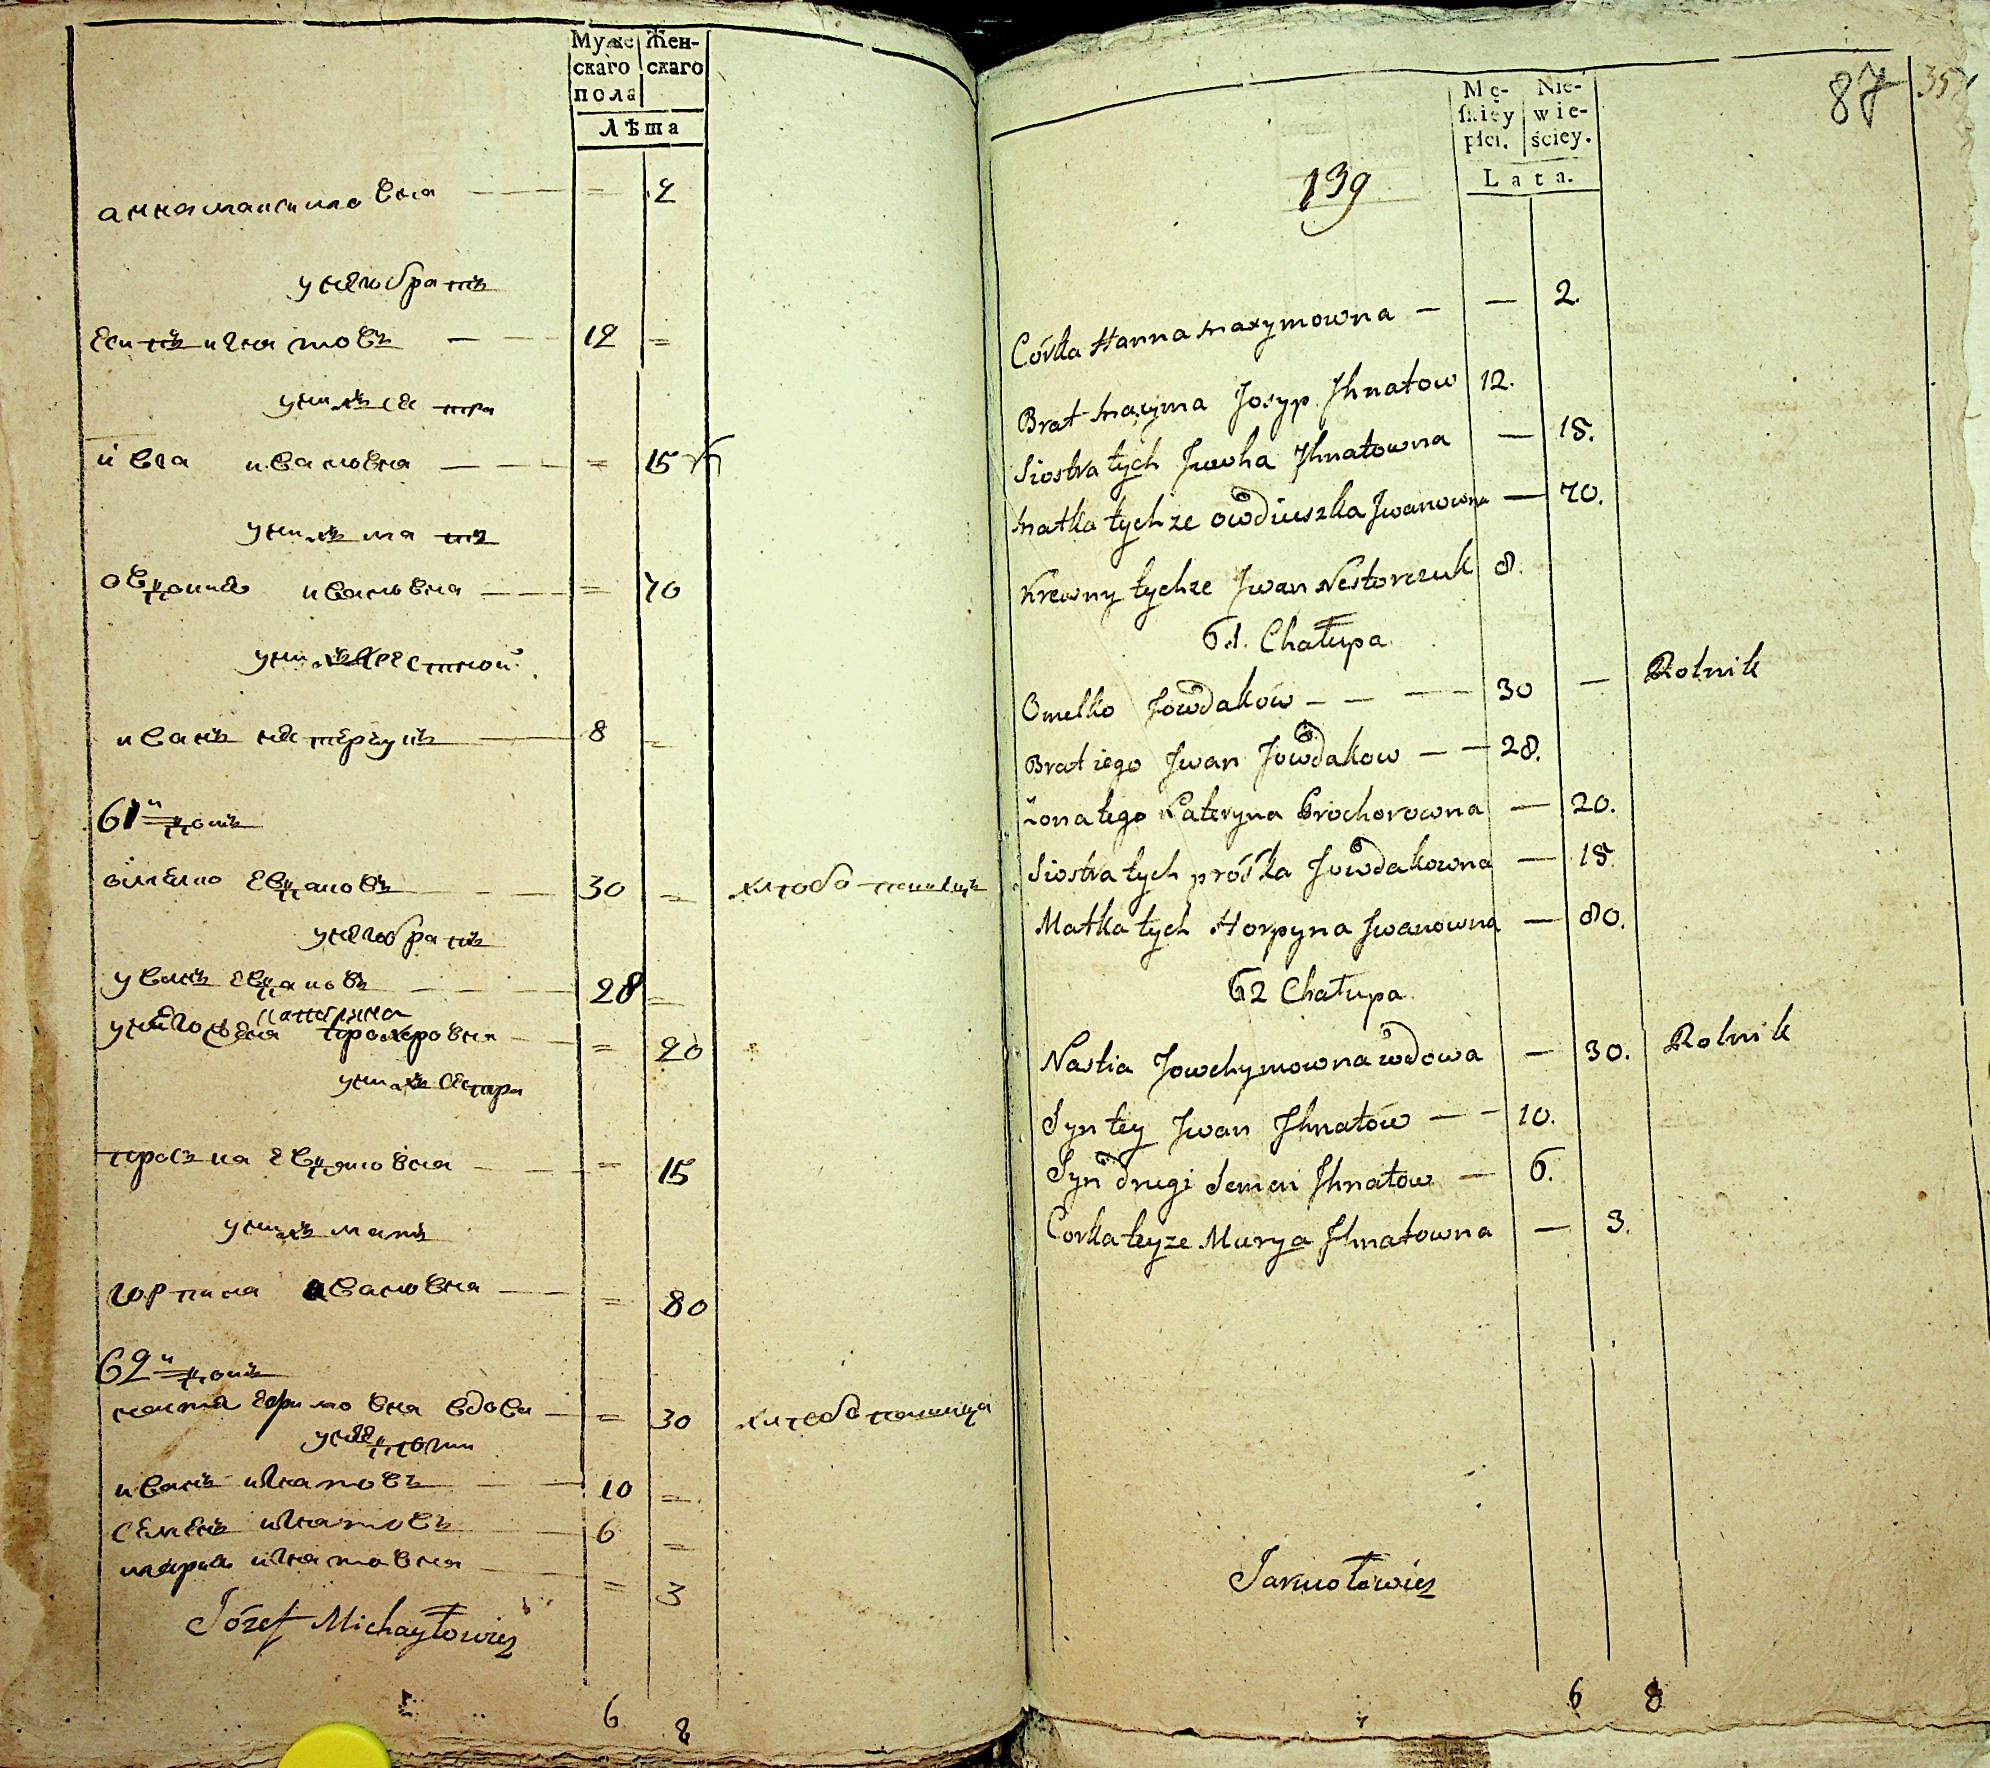 Муже Жен-
скаго скаго
пола
Лѣта
анна максимовна — = 2
у него братъ
есипъ игнатовъ — 12 =
у нихъ сестра
ивга ивановна — = 15
у нихъ мать
овдошка ивановна — = 70
у нихъ крестной
иванъ нестерчукъ — 8 =
61й домъ
омелко евдаковъ — 30 = хлебопашецъ
у него братъ
иванъ евдаковъ — 28 =
катерина
у него жена прохоровна — = 20
у нихъ сестра
проська евдаковна — = 15
у нихъ мать
горпина ивановна — = 80
62й домъ
настя ефимовна вдова — = 30 хлебопашица
у неё дети
иванъ игнатовъ — 10 =
семенъ игнатовъ — 6 =
марья игнатовна — = 3
Józef Michayłowicz
6 8
87 35
Mę- Nie-
skiey wie-
płci. ściey.
Lata.
139
Córka Hanna Maxymowna — — 2.
Brat Maxyma Josyp Jhnatow 12.
Siostra tych Juwha Jhnatowna — 15.
Matka tychze Owdiuszka Jwanowna — 70.
Krewny tychze Jwan Nestorczuk 8.
61. Chałupa
Omelko Jowdaków — — — 30 — Rolnik
Brat iego Jwan Jowdakow — — 28.
Żona tego Kateryna Prochorowna — 20.
Siostra tych Próśka Jowdakowna — 15.
Matka tych Horpyna Jwanowna — 80.
62 Chałupa
Nastia Jowchymowna wdowa — 30. Rolnik
Syn tey Jwan Jhnatów — — 10.
Syn drugi Semen Jhnatow — 6.
Corka teyze Marya Jhnatowna — 3.
Jarmołowicz
6 8